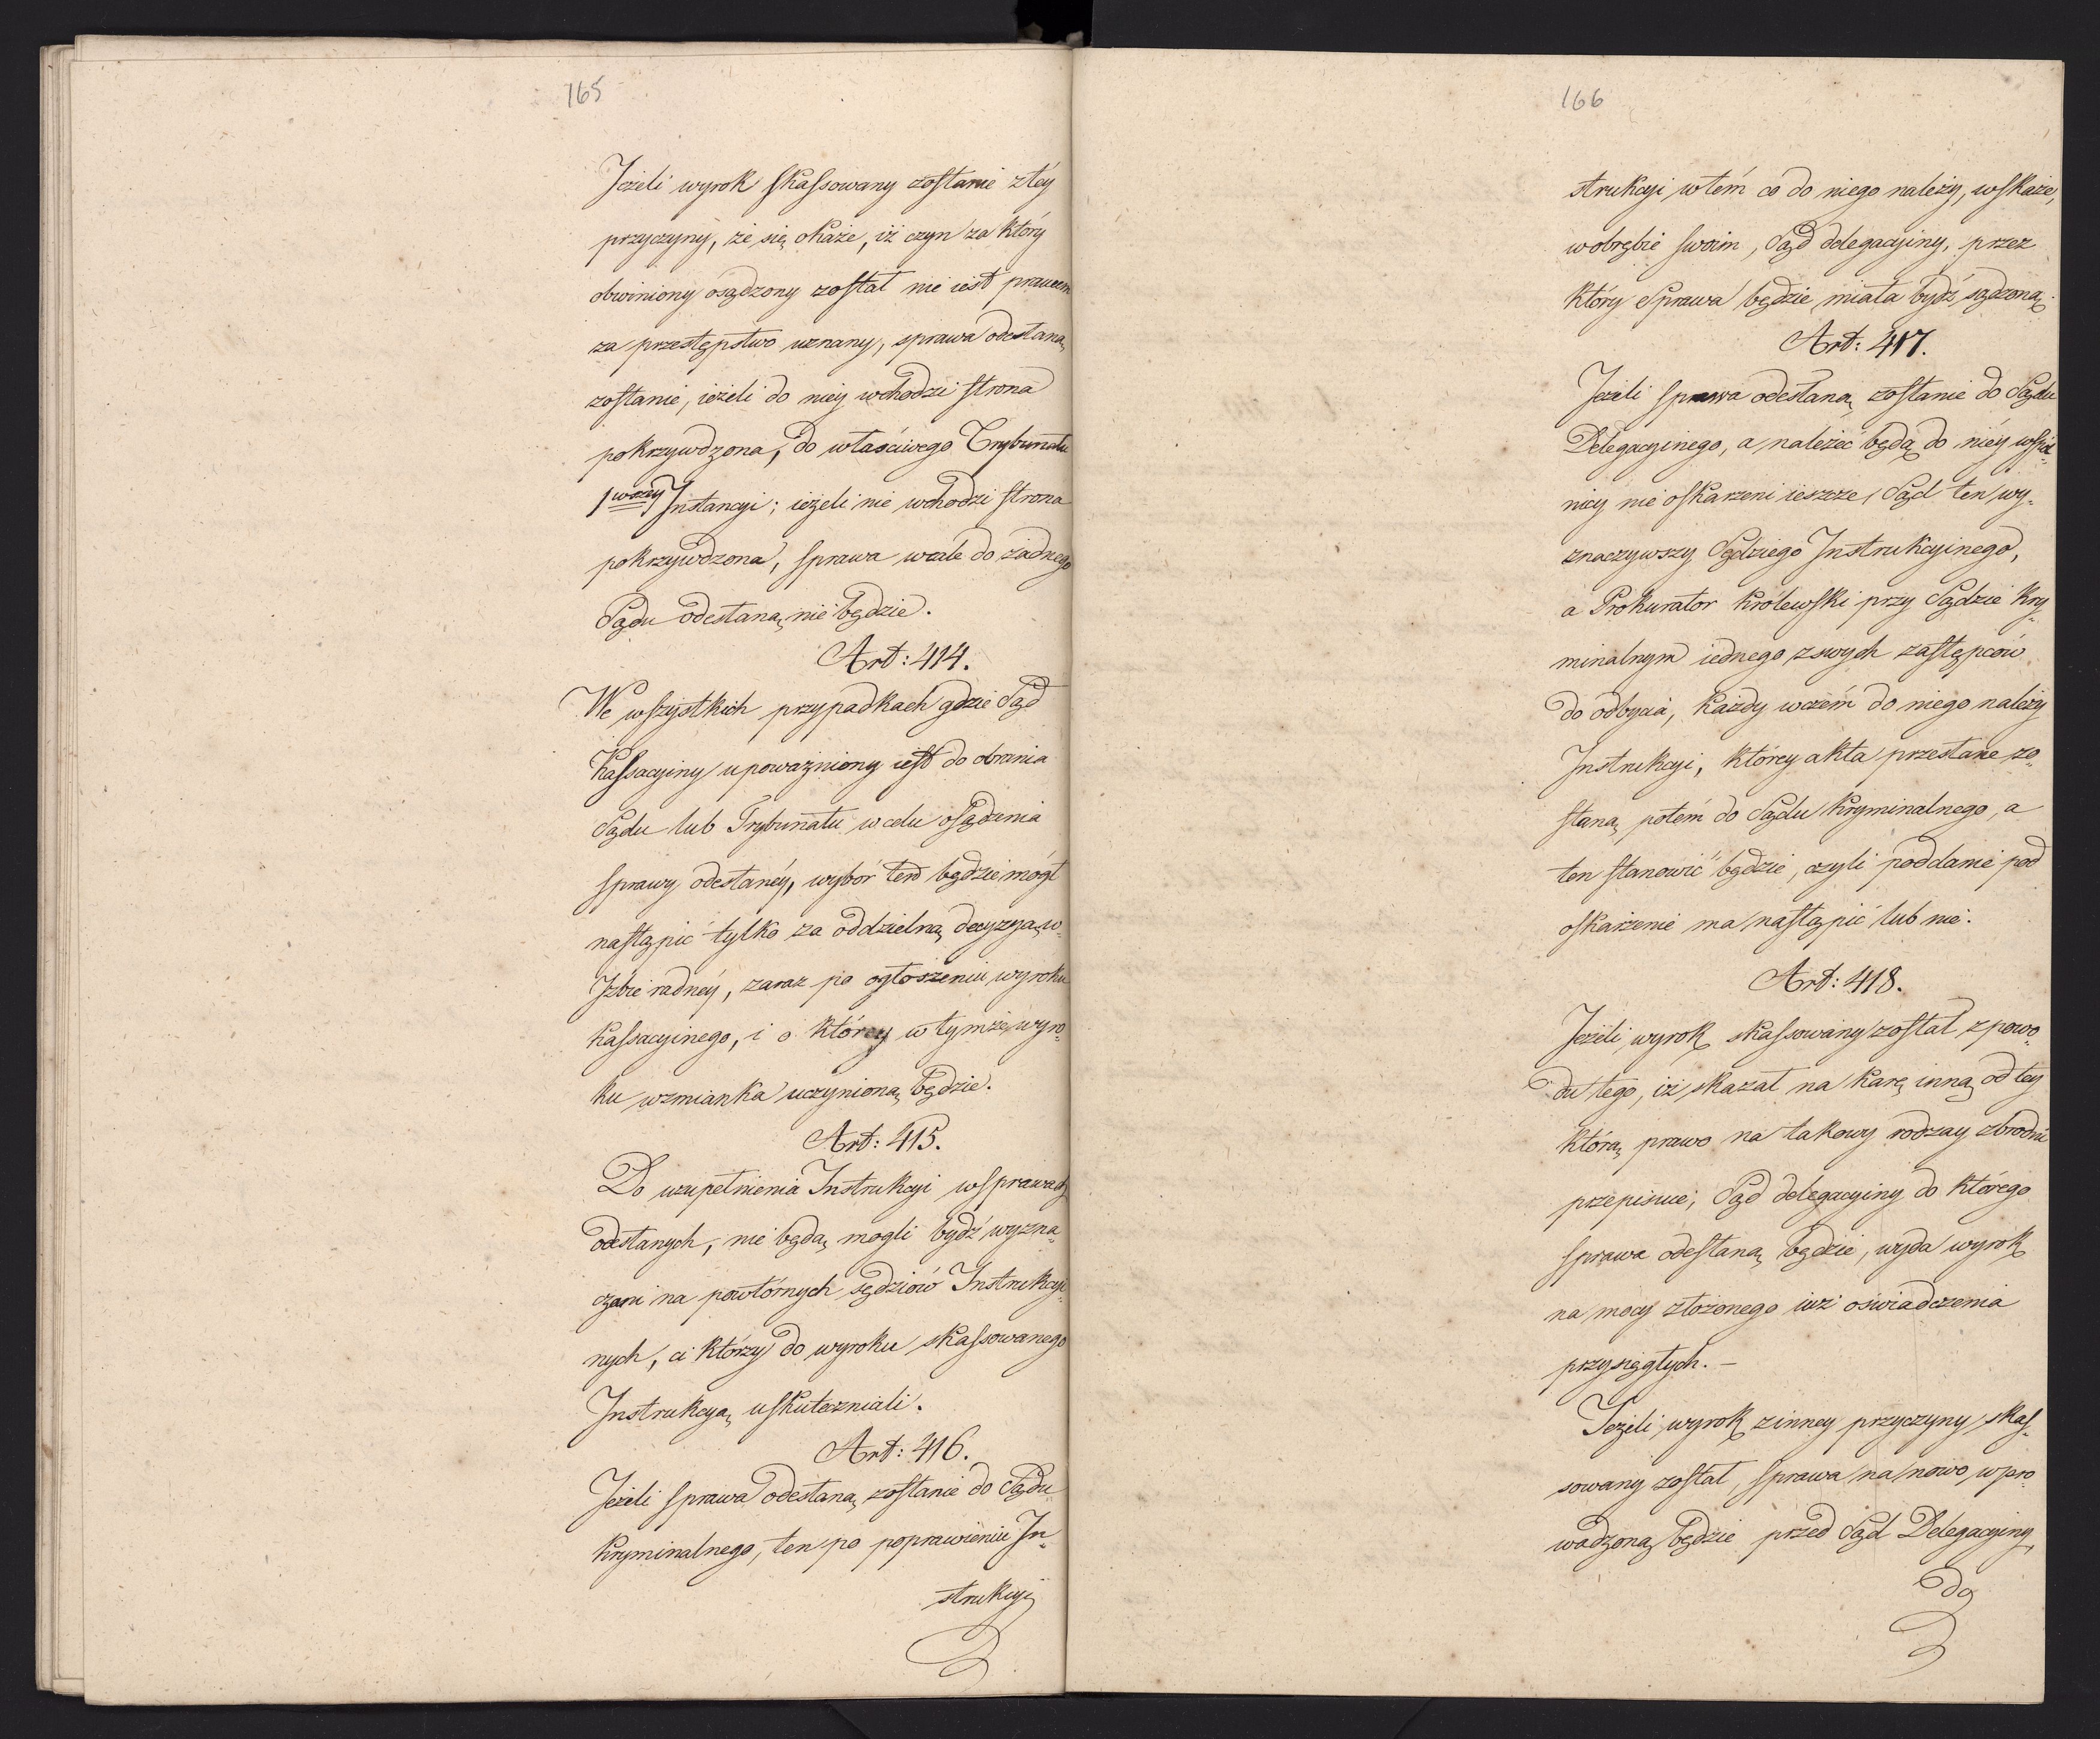 165
Jeżeli wyrok skassowany zostanie z téy
przyczyny, że się okaże, iż czyn za który
obwiniony osądzony został nie iest prawem
za przestępstwo uznany, sprawa odesłaną
zostanie, ieżeli do niey wchodzi strona
pokrzywdzona, do właściwego Trybunału
1wszey Instancyi; ieżeli nie wchodzi strona
pokrzywdzona, sprawa wcale do żadnego
Sądu odesłaną nie będzie.
Art: 414.
We wszystkich przypadkach gdzie Sąd
Kassacyiny upoważniony iest do obrania
Sądu lub Trybunału w celu osądzenia
sprawy odesłanéy, wybór ten będzie mógł
nastąpić tylko za oddzielną decyzyą w
Izbie radnéy, zaraz po ogłoszeniu wyroku
kassacyinego, i o którey w tymże wyro„
ku wzmianka uczynioną będzie.
Art: 415.
Do uzupełnienia Instrukcyi w sprawach
odesłanych, nie będą mogli bydź wyzna„
czeni na powtórnych sędziów Instrukcyi„
nych, ci którzy do wyroku skassowanego
Instrukcyą uskuteczniali.
Art: 416.
Jeżeli sprawa odesłaną zostanie do Sądu
kryminalnego, ten po poprawieniu In„
strukcyi
166
strukcyi w tém co do niego należy, wskaże,
w obrębie swoim, Sąd delegacyiny, przez
który Sprawa będzie miała bydź sądzoną.
Art: 417.
Jeżeli sprawa odesłaną zostanie do Sądu
Delegacyinego, a należec będą do niéy wspól„
nicy nie oskarżeni ieszcze, Sąd ten wy„
znaczywszy Sędziego Instrukcyinego,
a Prokurator Królewski przy Sądzie Kry„
minalnym iednego z swych zastępców
do odbycia, każdy w czém do niego należy
Instrukcyi, którey akta przesłane zo„
staną potém do Sądu Kryminalnego, a
ten stanowić będzie, czyli poddanie pod
oskarżenie ma nastąpić lub nie.
Art: 418.
Jeżeli wyrok skassowany został z powo„
du tego, iż skazał na karę inną od tey
którą prawo na takowy rodzay zbrodni
przepisuie, Sąd delegacyiny do którego
sprawa odesłaną będzie, wyda wyrok
na mocy złożonego iuż oświadczenia
przysięgłych. —
Jeżeli wyrok z inney przyczyny skas„
sowany został, sprawa na nowo wpro„
wadzoną będzie przed Sąd Delegacyiny,
do